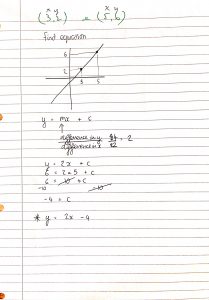 x y x y
(3,2) & (5,6)
find equation
6
2
3 5
y = mx + c
difference in y 4
difference in x 2 = 2
y = 2x + c
6 = 2 × 5 + c
6 = 10 + c
-10 -10
-4 = c
* y = 2x -4